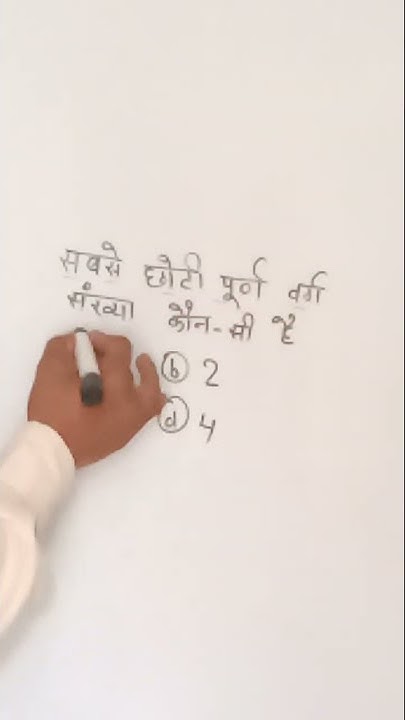 सबसे छोटी पूर्ण वर्ग
संख्या कौन-सी है
(b) 2
(d) 4